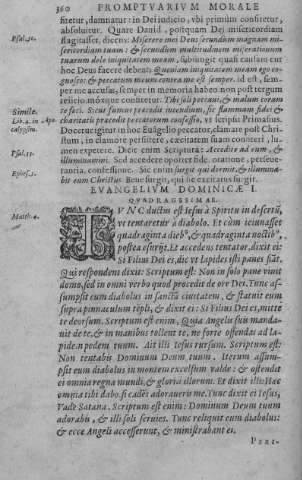 360 PROMPTVARIVM MORALE
fitetur, damnatur: in Dei iudicio, vbi primùm confitetur,
absoluitur. Quare Dauid, postquam Dei misericordiam
Psal. 50. flagitasset, dicens: Miserere mei Deus secundùm magnam mi-
sericordiam tuam: & secundùm multitudinem miserationum
tuarum dele iniquitatem meam, subiungit quasi causam cur
hoc Deus facere debeat: Quoniam iniquitatem meam ego co-
gnosco: & peccatum meum contra me est semper. id est, sem-
per me accusat, semper in memoria habeo. non post tergum
reiicio. mónque continuat: Tibi soli peccaui, & malum coram
Simile. te feci. Sicut fumus procedit incendium, sic flammam fidei &
Lib. 2. in Apo- charitatis procedit peccatorum confessio, vt scripsit Primasius.
calypsim. Docetur igitur in hoc Euāgelio peccator, clamare post Chri-
stum, in clamore persistere, cæcitatem suam conteri, lu-
Psal. 33. men expetere. Dicit enim Scriptura: Accedite ad eum, &
illuminamini. Sed accedere oportet fide, oratione, perseue-
Ephes. 5. rantia, confessione. Sic enim surgit qui dormit, & illumina-
bit eum Christus. Bene surgit, qui se excitatus surgit.
EVANGELIVM DOMINICÆ I.
QVADRAGESIMÆ.
Matth. 4. TVNC ductus est Iesus à Spiritu in desertū,
vt tentaretur à diabolo. Et cùm ieiunasset
quadraginta dieb°, & quadraginta noctib°,
postea esurijt. Et accedens tentator, dixit ei:
Si Filius Dei es, dic vt lapides isti panes fiāt.
Qui respondens dixit: Scriptum est: Non in solo pane viuit
homo, sed in omni verbo quod procedit de ore Dei. Tunc as-
sumpsit eum diabolus in sanctā ciuitatem, & statuit eum
supra pinnaculum tēpli, & dixit ei: Si Filius Dei es, mitte
te deorsum. Scriptum est enim, Quia Angelis suis manda-
uit de te, & in manibus tollent te, ne forte offendas ad la-
pidem pedem tuum. Ait illi Iesus rursum. Scriptum est:
Non tentabis Dominum Deum tuum. Iterum assum-
psit eum diabolus in montem excelsum valde: & ostendit
ei omnia regna mundi, & gloriam illorum. Et dixit illi: Hæc
omnia tibi dabo, si cadēs adoraueris me. Tunc dixit ei Iesus,
Vade Satana. Scriptum est enim: Dominum Deum tuum
adorabis, & illi soli seruies. Tunc reliquit eum diabolus:
& ecce Angeli accesserunt, & ministrabant ei.